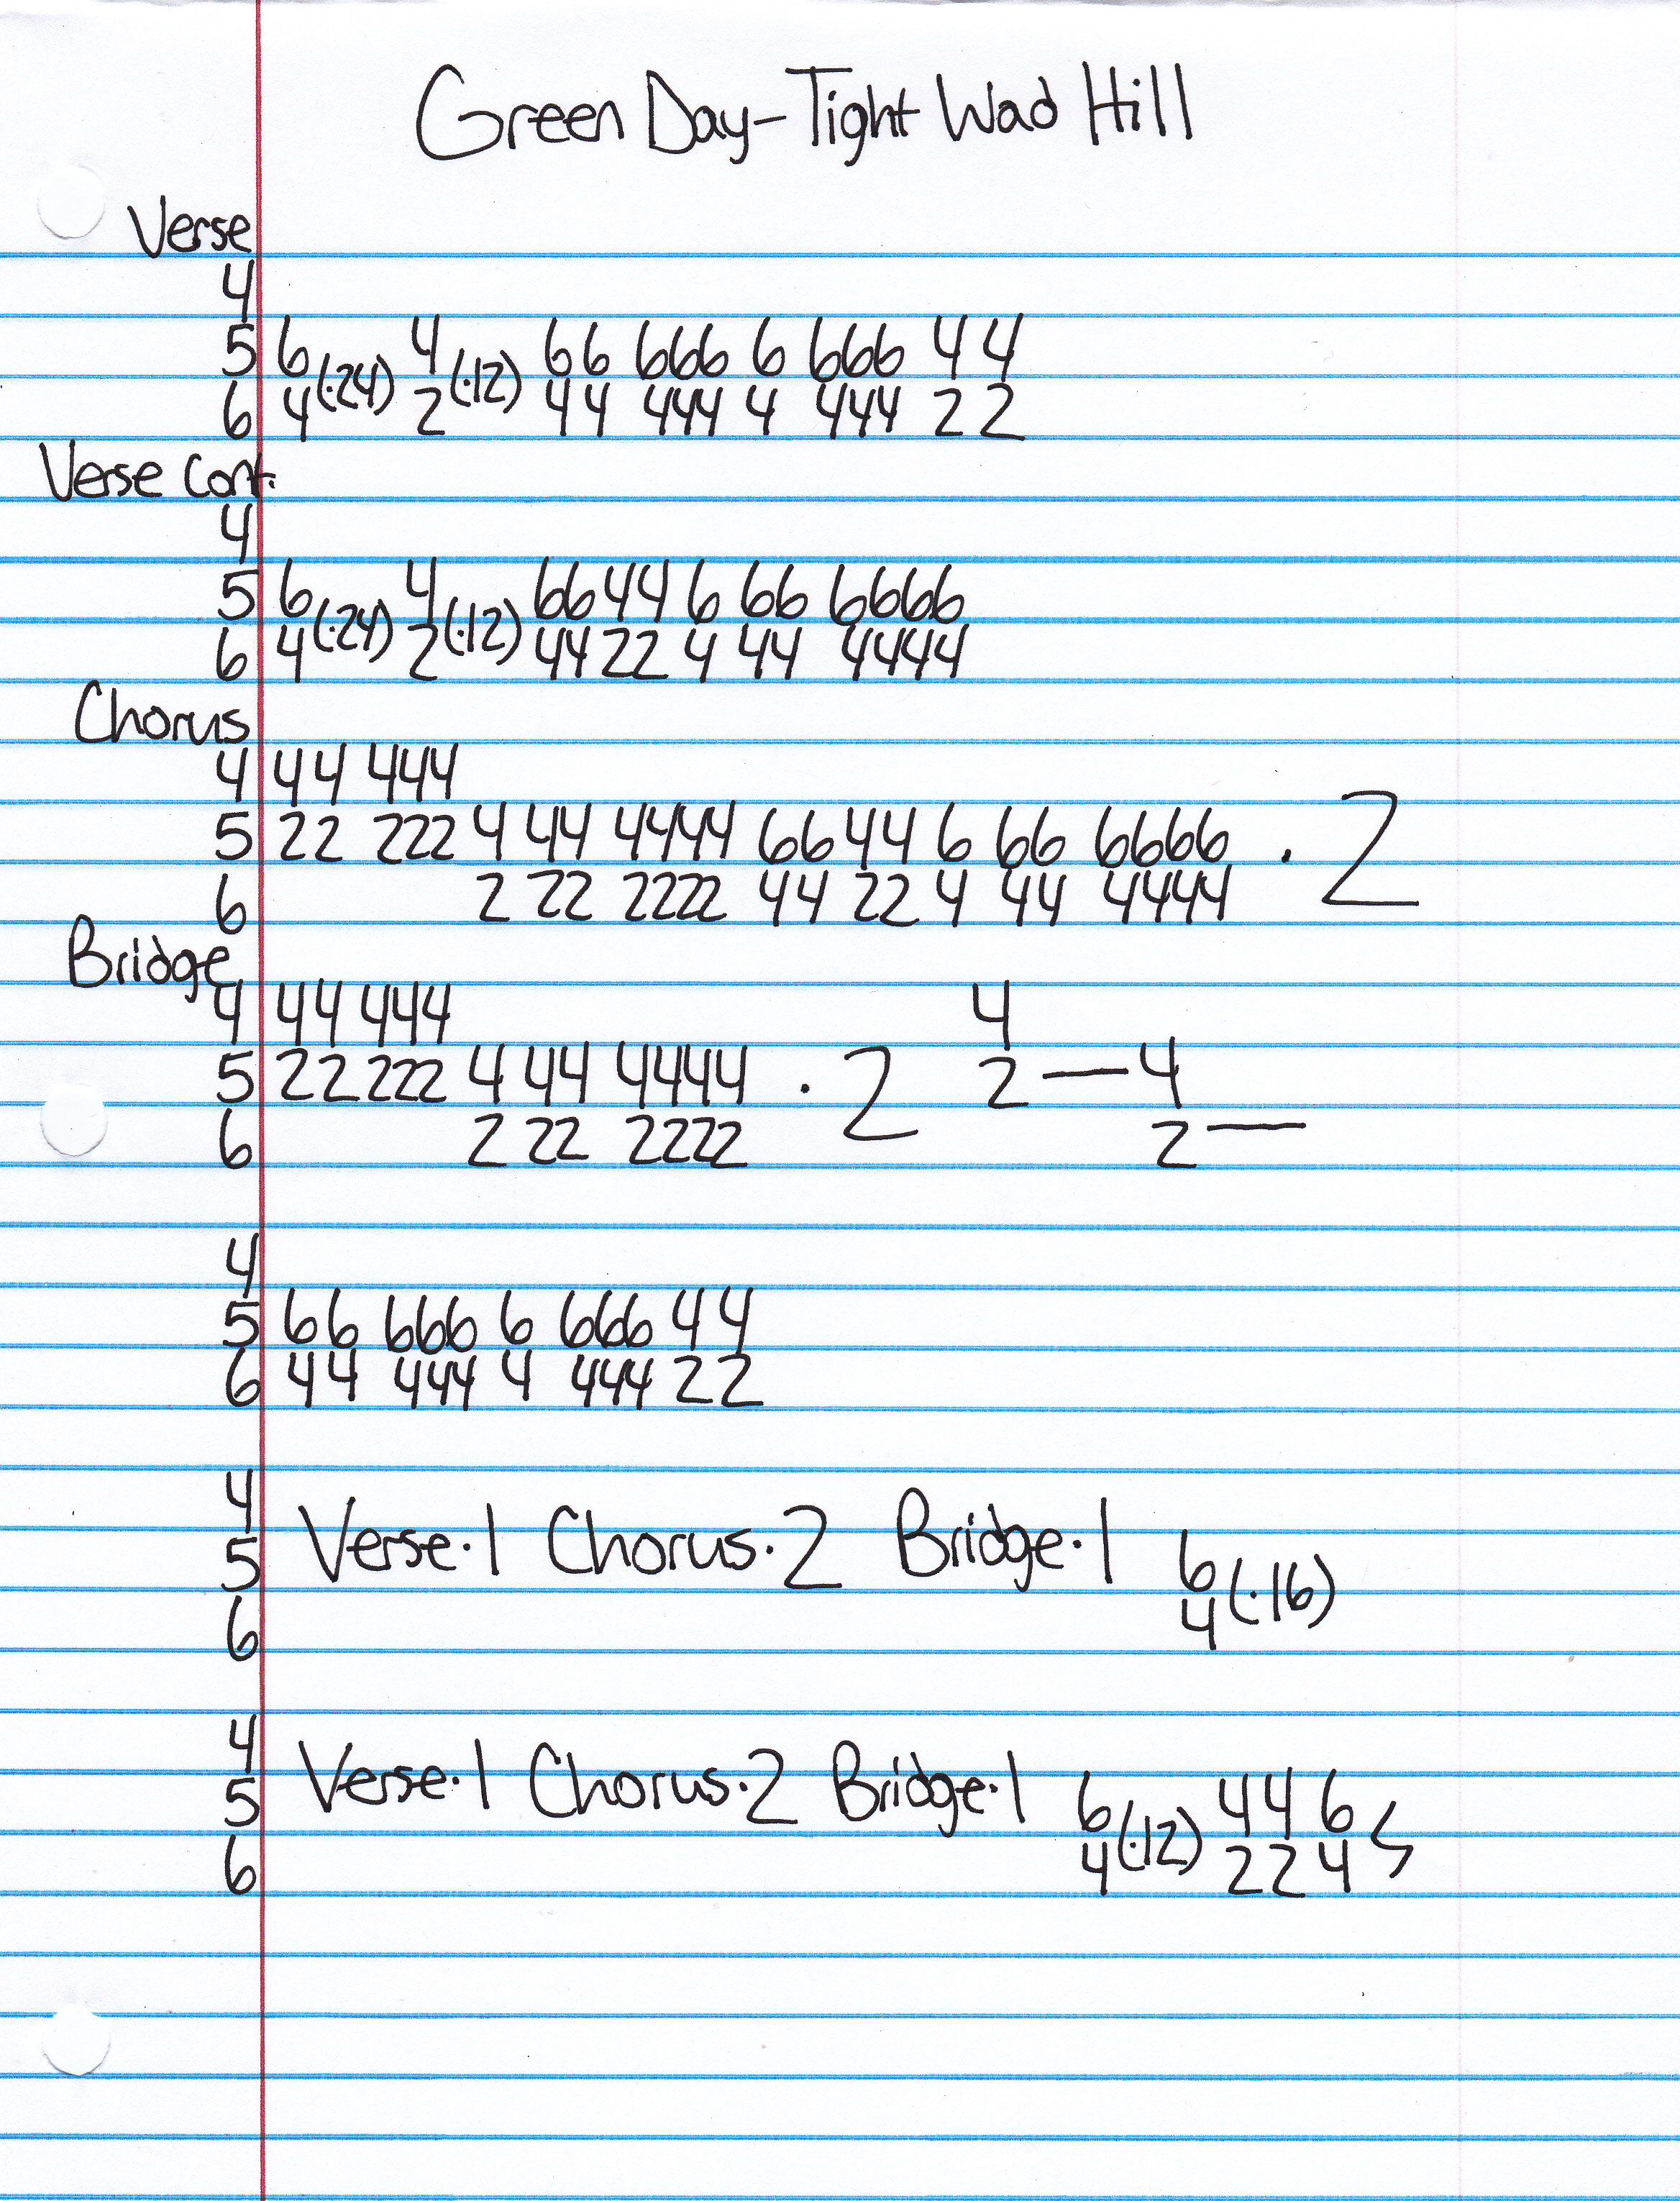 Green Day-Tight Wad Hill
Verse
4
5 6 (·24) 4 (·12) 66 666 6 666 4 4
6 4 2 44 444 4 444 2 2
Verse Cont.
4
5 6 (·24) 4 (·12) 66 44 6 66 6666
6 4 2 44 22 4 44 4444
Chorus
4 44 444
5 22 222 4 44 4444 66 44 6 66 6666 · 2
6 2 22 2222 44 22 4 44 4444
Bridge
4 44 444 4
5 22 222 4 44 4444 · 2 2 — 4
6 2 22 2222 2 —
4
5 66 666 6 666 4 4
6 44 444 4 444 2 2
4
5 Verse·1 Chorus·2 Bridge·1 6 (·16)
6 4
4
5 Verse·1 Chorus·2 Bridge·1 6 (·12) 4 4 6
6 4 2 2 4